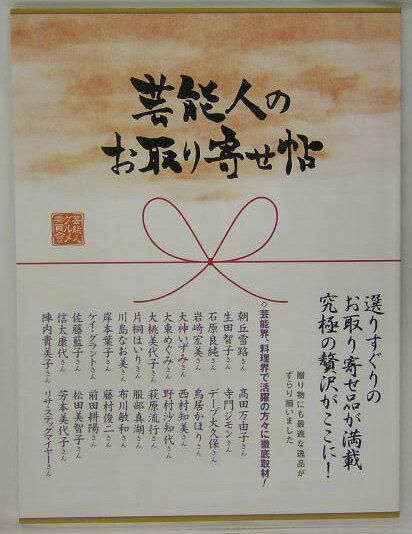 芸能人の
お取り寄せ帖
芸能人
グルメ
委員会編
選りすぐりの
お取り寄せ品が満載
究極の贅沢がここに！
贈り物にも最適な逸品が
ずらり揃いました
◇芸能界、料理界で活躍の方々に徹底取材！
朝丘雪路さん
生田智子さん
石原良純さん
岩崎宏美さん
大神いずみさん
大東めぐみさん
大桃美代子さん
片桐はいりさん
川島なお美さん
岸本葉子さん
ケイ・グラントさん
佐藤藍子さん
信太康代さん
陣内貴美子さん
高田万由子さん
寺門ジモンさん
デーブ大久保さん
鳥居かほりさん
西村知美さん
野村沙知代さん
萩原流行さん
服部真湖さん
布川敏和さん
藤村俊二さん
前田耕陽さん
松田美智子さん
芳本美代子さん
リサ・ステッグマイヤーさん